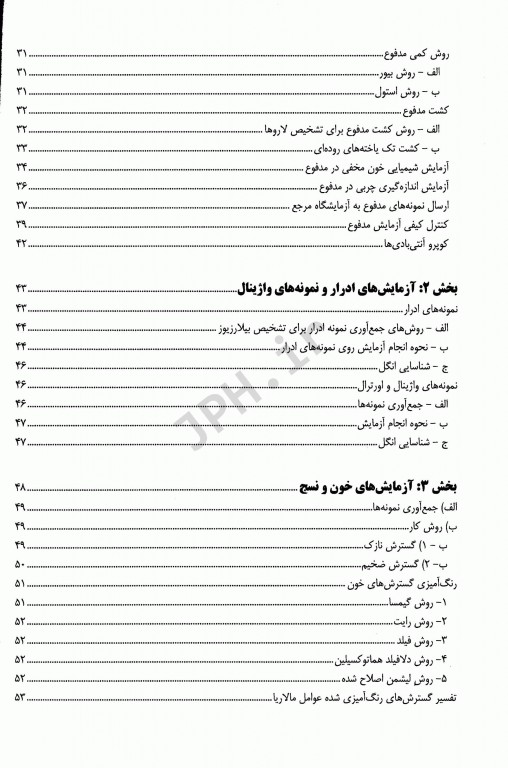 روش کمی مدفوع ........ ۳۱
الف - روش بیور ........ ۳۱
ب - روش استول ........ ۳۱
کشت مدفوع ........ ۳۲
الف - روش کشت مدفوع برای تشخیص لاروها ........ ۳۲
ب - کشت تک یاخته‌های روده‌ای ........ ۳۳
آزمایش شیمیایی خون مخفی در مدفوع ........ ۳۴
آزمایش اندازه‌گیری چربی در مدفوع ........ ۳۶
ارسال نمونه‌های مدفوع به آزمایشگاه مرجع ........ ۳۷
کنترل کیفی آزمایش مدفوع ........ ۳۹
کوپرو آنتی‌بادی‌ها ........ ۴۲
بخش ۲: آزمایش‌های ادرار و نمونه‌های واژینال ........ ۴۳
نمونه‌های ادرار ........ ۴۳
الف - روش‌های جمع‌آوری نمونه ادرار برای تشخیص بیلارزیوز ........ ۴۴
ب - نحوه انجام آزمایش روی نمونه‌های ادرار ........ ۴۴
ج - شناسایی انگل ........ ۴۶
نمونه‌های واژینال و اورترال ........ ۴۶
الف - جمع‌آوری نمونه‌ها ........ ۴۶
ب - نحوه انجام آزمایش ........ ۴۷
ج - شناسایی انگل ........ ۴۷
بخش ۳: آزمایش‌های خون و نسج ........ ۴۸
الف) جمع‌آوری نمونه‌ها ........ ۴۹
ب) روش کار ........ ۴۹
ب - ۱) گسترش نازک ........ ۴۹
ب- ۲) گسترش ضخیم ........ ۵۰
رنگ‌آمیزی گسترش‌های خون ........ ۵۱
۱- روش گیمسا ........ ۵۱
۲- روش رایت ........ ۵۲
۳- روش فیلد ........ ۵۲
۴- روش دلافیلد هماتوکسیلین ........ ۵۲
۵- روش لیشمن اصلاح شده ........ ۵۲
تفسیر گسترش‌های رنگ‌آمیزی شده عوامل مالاریا ........ ۵۳
JPH.ir